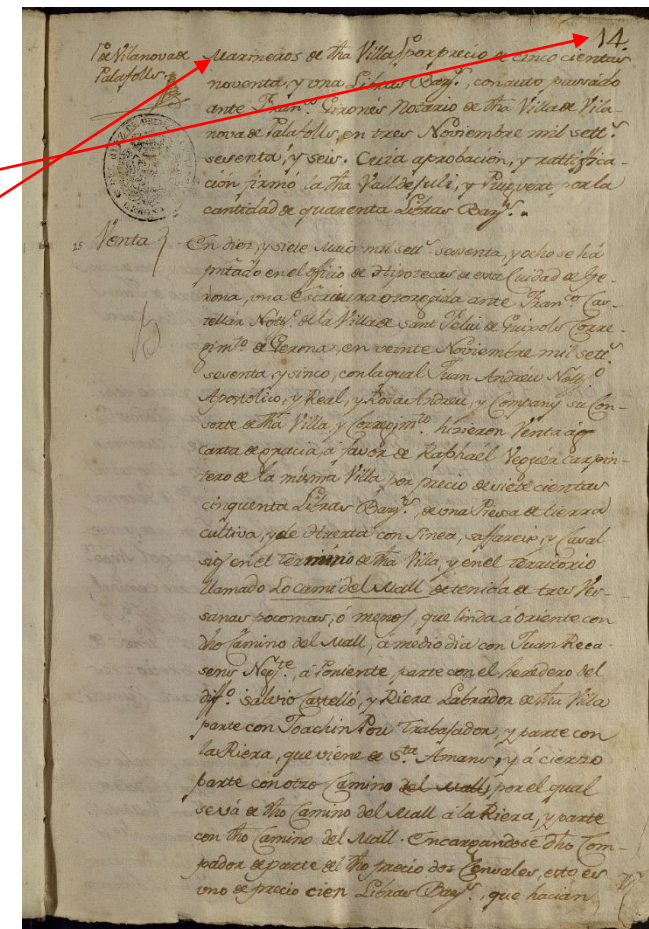 14.
1.ª de Vilanova de
Palafolls.
Marineros de dha Villa, por precio de cinco cientas
noventa, y una Libras Barq.ˢ, con auto passado
ante Fran.ᶜᵒ Gironés Notario de dha Villa de Vila-
nova de Palafolls, en tres Noviembre mil sett.ˢ
sesenta, y seis. Cuia aprobacion, y rattifica-
ción firmó la dha Valldejuli, y Puigvert por la
cantidad de quarenta Libras Barq.ˢ
25 Venta
En diez, y siete Maio mil sett.ˢ sesenta, y ocho se há
en el Officio de Hipotecas de esta Ciudad de Ge-
rona, una Escritura otorgida ante Fran.ᶜᵒ Cas-
tellar Nott.º de la Villa de Sant Feliu de Guixols Corre-
gim.ᵗᵒ de Gerona, en veinte Noviembre mil sett.ˢ
sesenta, y sinco, con la qual Juan Andreu Nott.º
Apostolico, y Real, y Rosa Andreu, y Company su Con-
sorte de dha Villa, y Corregim.ᵗᵒ hizieron Venta á
carta de gracia, á favor de Raphaèl Veguèr Carpin-
tero de la misma Villa por precio de siete cientas
cinquenta Libras Barq.ˢ, de una Piessa de tierra
cultiva, y de Huerta con Sinea, saffareix, y Casal
en el Termino de dha Villa, y en el Territorio
llamado Lo camí del Mall de tenida de tres Ves-
sanas poco mas, ó menos, que linda á Oriente con
dho Camino del Mall, á medio dia con Juan Reca-
sens Neg.ᵗᵉ, á Poniente, parte con el heredero del
diff.º Salvio Castelló, y Riera Labrador de dha Villa
parte con Joachin Pou Trabajador, y parte con
la Riera, que viene de S.ᵗᵃ Amans, y á cierzo
parte con otro Camino del Mall, por el qual
se vá de dho Camino del Mall á la Riera, y parte
con dho Camino del Mall. Encargandose dho Com-
pador de parte del dho precio dos Censales, esto es
uno de precio cien Libras Barq.ˢ, que hacian